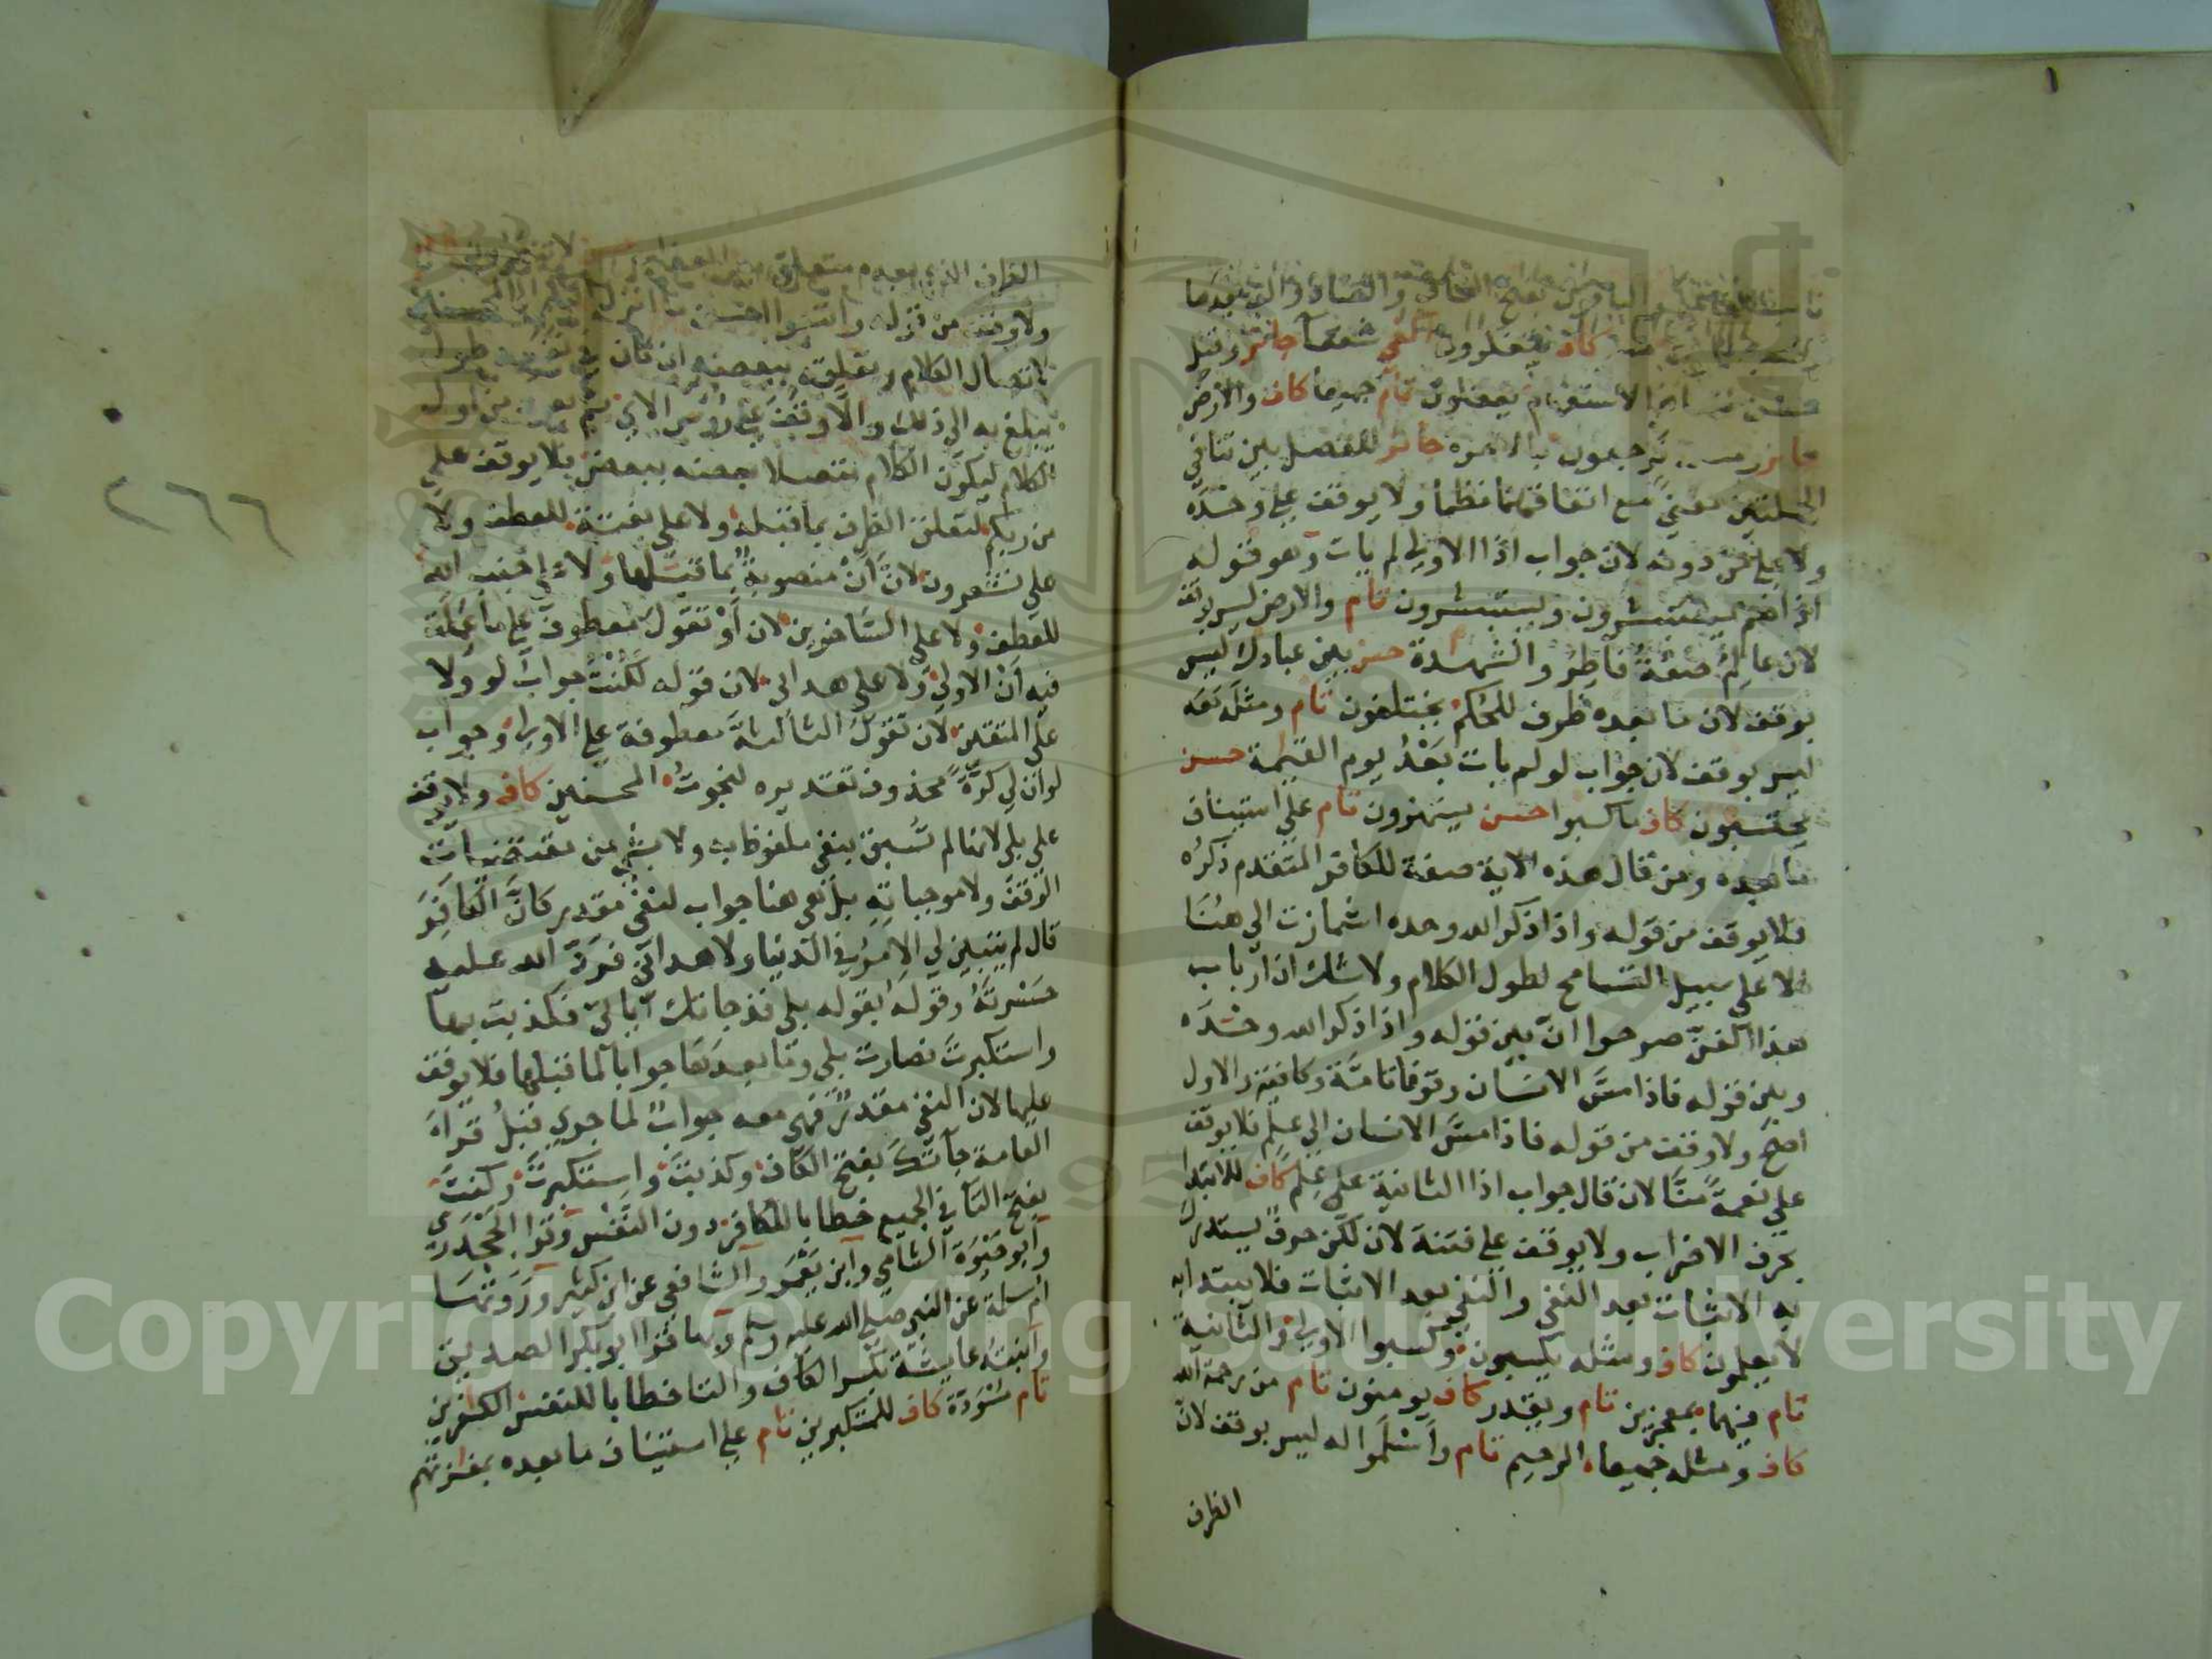 بفتح القاف والضاد والتي بعدها
كاف يتفكرون كاف شفعاء جائز وقيل
الاستفهام يعقلون تام جميعا كاف والارض
جائز ترجعون تام اشمازت بالاخرة جائز للفصل بين تنافي
الجملتين معنى مع اتفاقهما نظما ولا يوقف على وحده
ولا على من دونه لان جواب اذا الاولى لم يات وهو قوله
اذا هم يستبشرون ويستبشرون تام والارض ليس بوقف
لان عالم صفة فاطر والشهدة حسن بين عبادك ليس
بوقف لان ما بعده ظرف للحكم يختلفون تام ومثله معه
ليس بوقف لان جواب لو لم يات بعد يوم القيمة حسن
يحتسبون كاف ما كسبوا حسن يستهزون تام على استيناف
ما بعده ومن قال هذه الاية صفة للكافر المتقدم ذكره
فلا يوقف من قوله واذا ذكر الله وحده اشمازت الى هنا
الا على سبيل التسامح لطول الكلام ولا شك ان ارباب
هذا الفن صرحوا ان بين قوله واذا ذكر الله وحده
وبين قوله فاذا مس الانسان وقوفا تامة وكافية والاول
اصح ولا وقف من قوله فاذا مس الانسان الى علم فلا يوقف
على نعمة منا لان قال جواب اذا الثانية على علم كاف للابتدا
بحرف الاضراب ولا يوقف على فتنة لان لكن حرف يستدرك
به الاثبات بعد النفي والنفي بعد الاثبات فلا يبتدا به
لا يعلمون كاف ومثله يكسبون وكسبوا الاولى والثانية
تام فيهما بمعجزين تام ويقدر كاف يومنون تام من رحمة الله
كاف ومثله جميعا الرحيم تام واسلموا له ليس بوقف لان
الظرف
الظرف الذي بعده متعلق
ولا وقف من قوله واتبعوا احسن ما انزل
لاتصال الكلام وتعلقه ببعضه ان كان في
يبلغ به الى ذلك والا وقف على رؤس الاي ثم يعود من اول
الكلام ليكون الكلام متصلا بعضه ببعض فلا يوقف على
من ربكم لتعلق الظرف بما قبله ولا على بغتة للعطف ولا
على تشعرون لان ان منصوبة بما قبلها ولا على جنب الله
للعطف ولا على الساخرين لان او تقول معطوف على ما عملت
فيه ان الاولى ولا على هداني لان قوله لكنت جواب لو ولا
على المتقين لان تقول الثالثة معطوفة على الاولى وجواب
لو ان لي كرة محذوف تقديره لنجوت المحسنين كاف ولا يوقف
على بلى لانها لم تسبق بنفي ملفوظ به ولا بشي من مقتضيات
الوقف ولا موجباته بل هي هنا جواب لنفي مقدر كان الكافر
قال لم يتبين لي الامر في الدنيا ولا هداني فرد الله عليه
حسرته وقوله بقوله بلى قد جاتك اياتي فكذبت بها
واستكبرت فصارت بلى وما بعدها جوابا لما قبلها فلا يوقف
عليها لان النفي مقدر فهي معه جواب لما جرى قبل قرا
العامة جاتك بفتح الكاف وكذبت واستكبرت وكنت
بفتح التا في الجميع خطابا للكافر دون النفس وقرا الجحدري
وابو حيوة الشامي وابن يعمر والشافعي عن ابن كثير وروتها
ام سلمة عن النبي صلى الله عليه وسلم وبها قرا ابو بكر الصديق
وابنته عايشة بكسر الكاف والتا خطابا للنفس الكافرين
تام مسودة كاف للمتكبرين تام على استيناف ما بعده بمفازتهم
٢٦٦
Copyright © King Saud University
1957